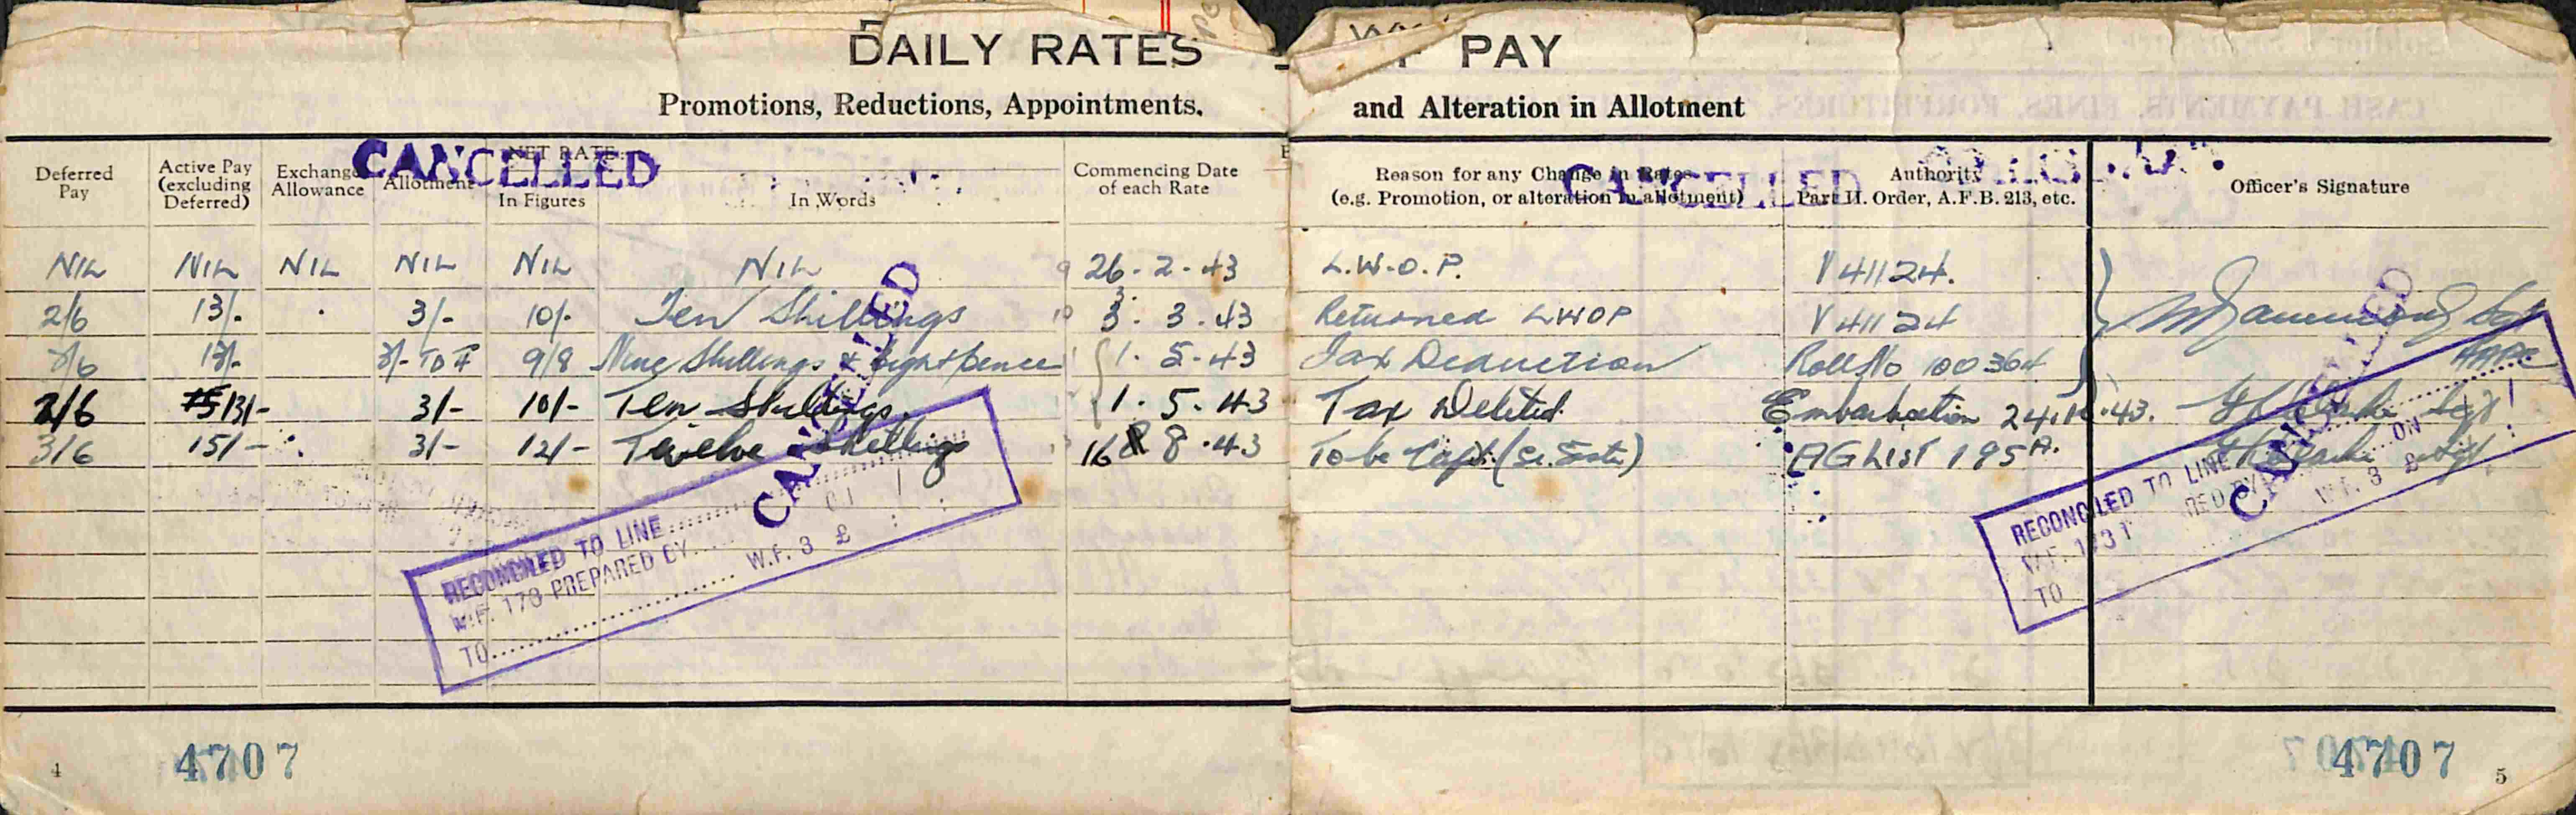 DAILY RATES PAY
Promotions, Reductions, Appointments, and Alteration in Allotment
Deferred Pay | Active Pay (excluding Deferred) | Exchange Allowance | Allotment | NET RATE: In Figures | In Words | Commencing Date of each Rate | Reason for any Change in Rates (e.g. Promotion, or alteration in allotment) | Authority Part II. Order, A.F.B. 213, etc. | Officer's Signature
CANCELLED
CANCELLED
NIL NIL NIL NIL NIL NIL 9 26-2-43 L.W.O.P. V41124.
2/6 13/- 3/- 10/- Ten Shillings 10 3. 3. 43 Returned LWOP V41124
2/6 13/- 3/- TO F 9/8 Nine Shillings & Eight pence 1. 5-43 Tax Deduction Roll No 100364
2/6 13/- 3/- 10/- Ten Shillings. 1. 5. 43 Tax Deleted. Embarkation 24.10.43.
3/6 15/- 3/- 12/- Twelve Shillings 16 8 .43 To be Capt. AG List 195A.
CANCELLED
CANCELLED
RECONCILED TO LINE
W.F. 173 PREPARED BY
TO W.F. 3 £ : :
RECONCILED TO LINE ON
W.F.
TO W.F. 3 £
4 4707
4707 5